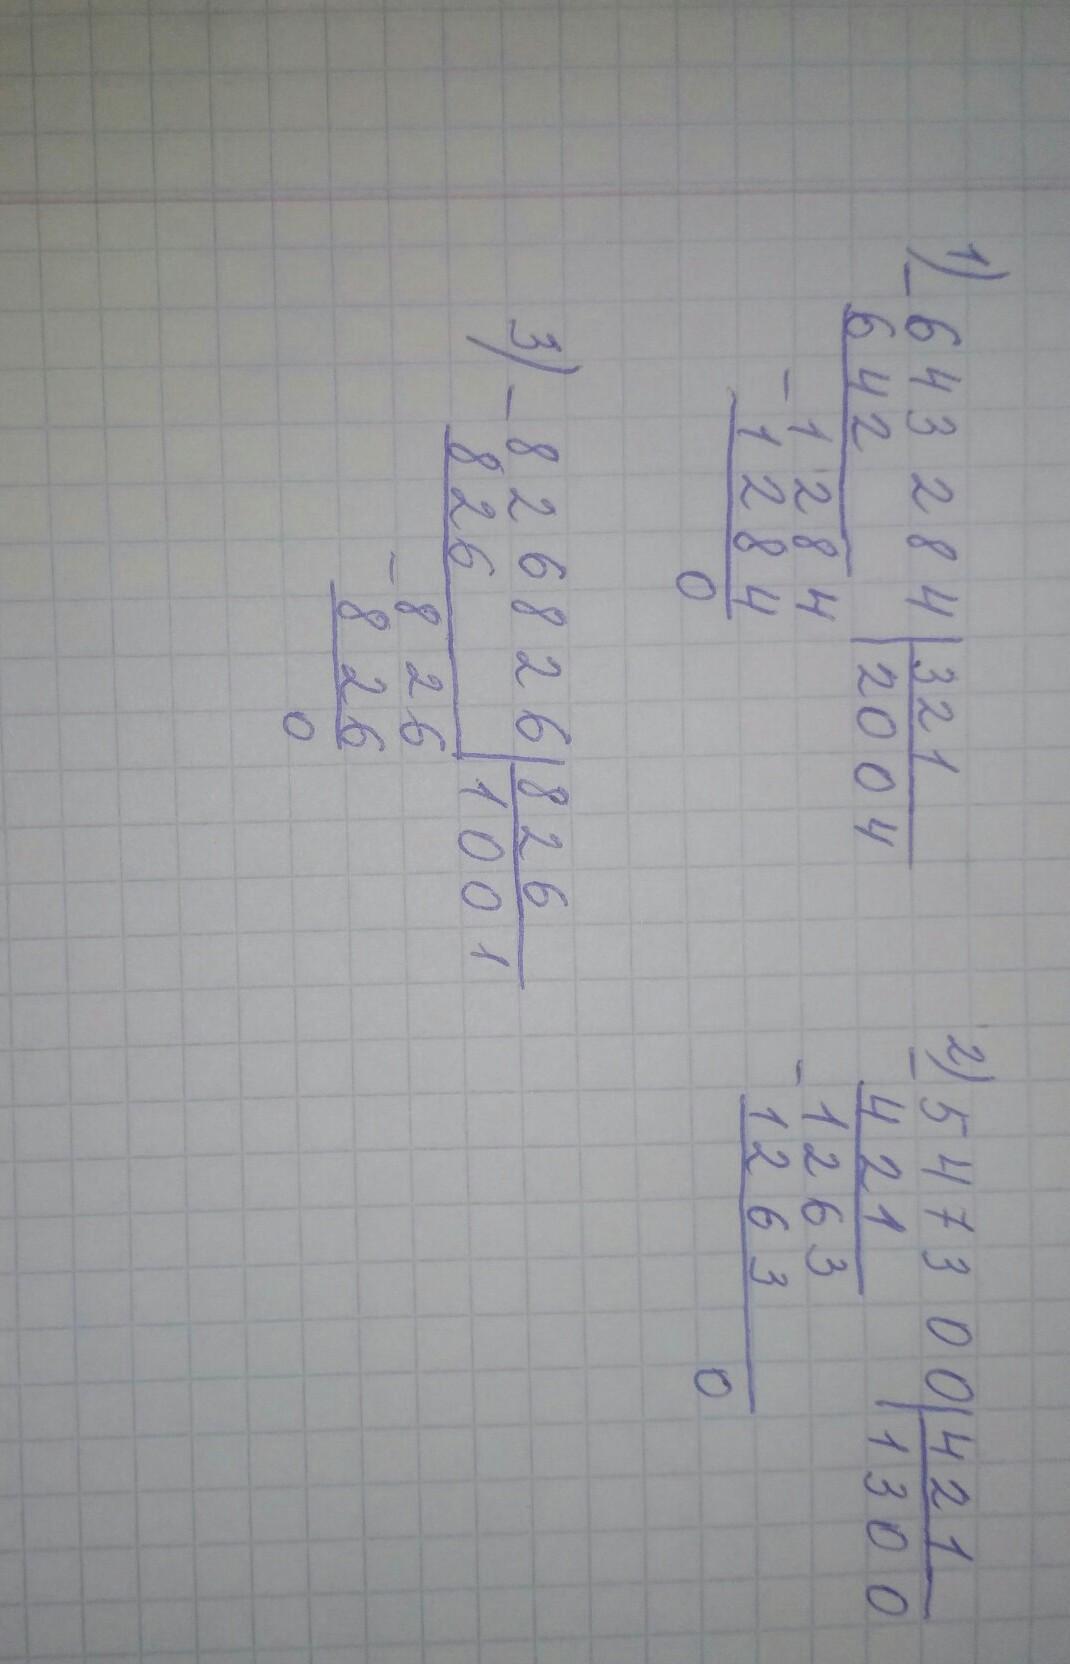 1) - 643284 | 321
642 | 2004
- 1284
1284
0
2) - 547300 | 421
421 | 1300
- 1263
1263
0
3) - 826826 | 826
826 | 1001
- 826
826
0